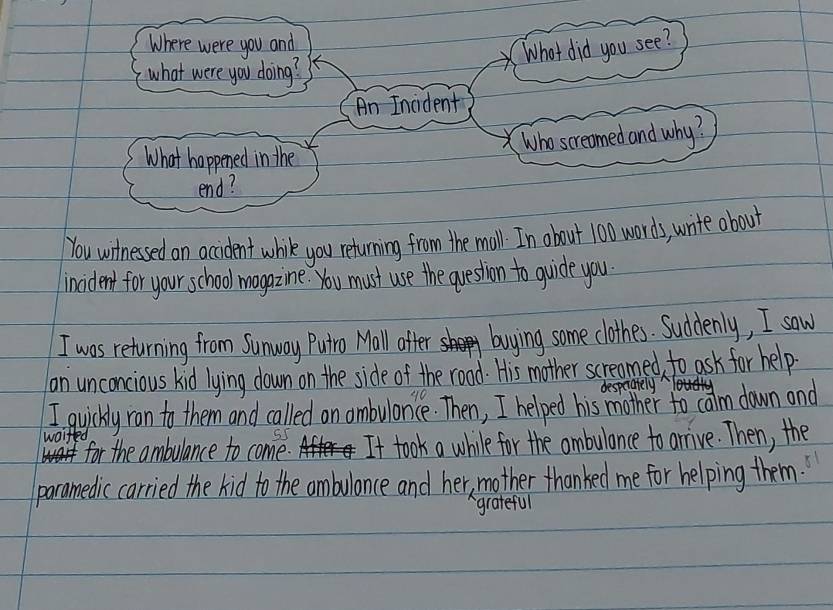 Where were you and
what were you doing?
What did you see?
An Incident
What happened in the
end?
Who screamed and why?
You witnessed an accident while you returning from the mall. In about 100 words, write about
incident for your school magazine. You must use the question to guide you.
I was returning from Sunway Putra Mall after shopy buying some clothes. Suddenly, I saw
an unconcious kid lying down on the side of the road. His mother screamed, to ask for help.
desperately loudly
I quickly ran to them and called an ambulance. Then, I helped his mother to calm down and
40
waited
wait for the ambulance to come. After a It took a while for the ambulance to arrive. Then, the
55
paramedic carried the kid to the ambulance and her mother thanked me for helping them.
81
grateful